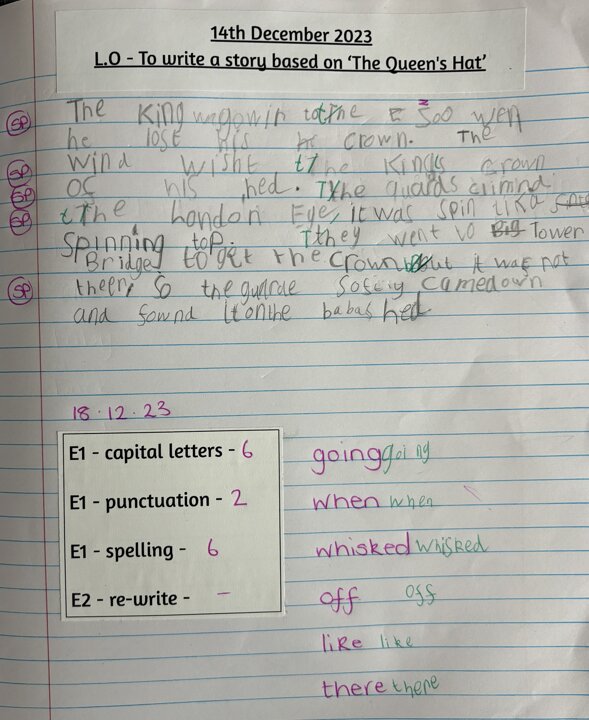 14th December 2023
L.O - To write a story based on 'The Queen's Hat'
SP The King to the Zoo wen
he lost his crown. The
SP wind wisht the Kings crown
SP of his hed. The guards climnd
SP The London Eye, it was spin lika
Spinning top. They went to Big Tower
Bridge to get the crown but it was not
SP theer, So the guarde Softly Camedown
and fownd itonthe babas hed
18.12.23
E1 - capital letters - 6 going going
E1 - punctuation - 2 when when
E1 - spelling - 6 whisked whisked
E2 - re-write - – off off
like like
there there